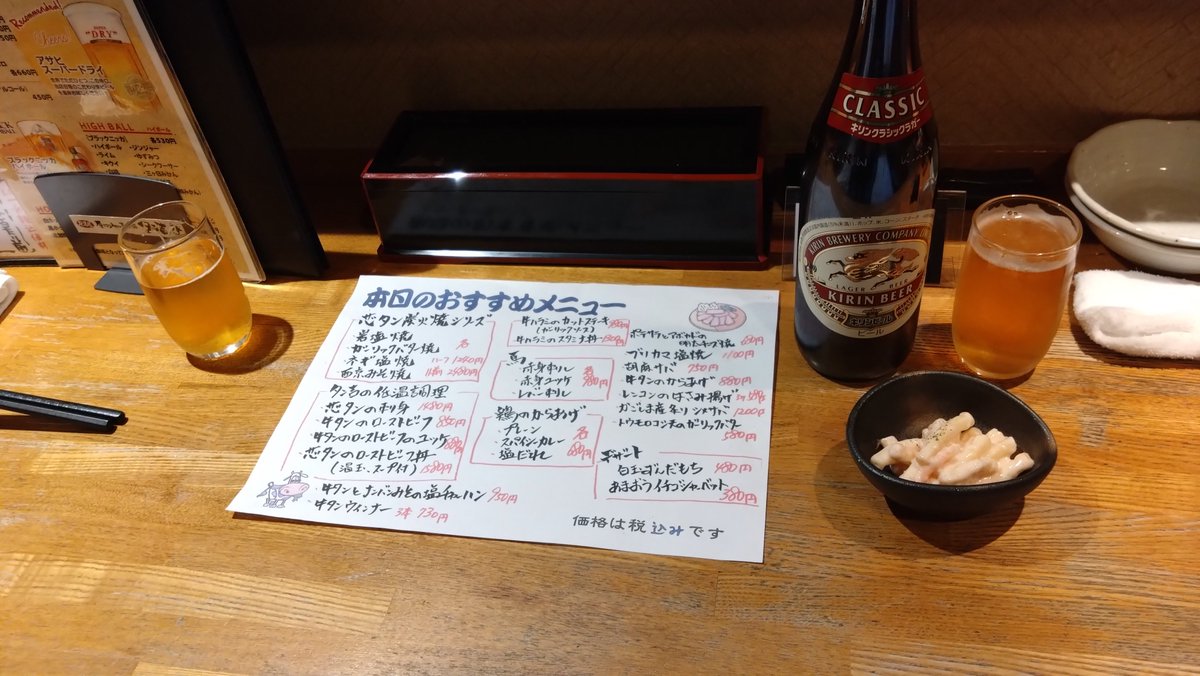 Recommended!
Cheers
"DRY"
アサヒ
スーパードライ
各660円
450円
HIGH-BALL ハイボール
各530円
・ハイボール ・ジンジャー
・ライム ・ゆずみつ
・キウイ ・シークワーサー
ブラックニッカ
ハイボール
CLASSIC
キリンクラシックラガー
KIRIN BREWERY COMPANY
LAGER BEER
KIRIN BEER
キリンビール
ビール
本日のおすすめメニュー
芯タン炭火焼シリーズ
岩塩焼
ガーリックバター焼 各
ネギ塩焼 ハーフ 1280円
西京みそ焼
タン吉の低温調理
・芯タンの刺身 1480円
・牛タンのローストビーフ 850円
・牛タンのローストビーフのユッケ
・芯タンのローストビーフ丼
(温玉、スープ付) 1580円
・牛タンとナンバンみその塩チャーハン 950円
・牛タンウィンナー 3本 730円
・牛ハラミのカットステーキ
(ガーリックソース)
・牛ハラミのスタミナ丼
馬
・赤身ユッケ
鶏のからあげ
・プレーン 各
・スパイシーカレー 680円
・塩だれ
・ブリカマ塩焼 1100円
・胡麻サバ 750円
・牛タンのからあげ 880円
・レンコンのはさみ揚げ
・トウモロコシ天のガーリックバター
580円
デザート
白玉ずんだもち 480円
あまおうイチゴシャーベット
380円
価格は税込みです